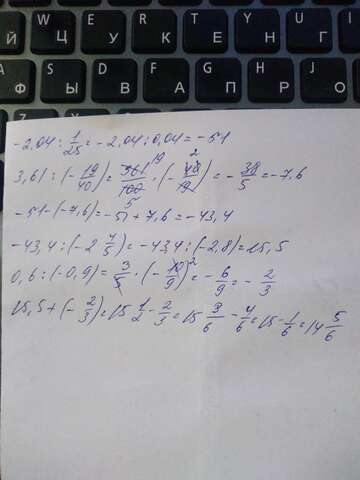 W E R T Y U I
Й Ц У К Е Н Г Ш
A S D F G H J
Ф В А П Р О
-2,04 : 1/25 = -2,04 : 0,04 = -51
3,61 : (-19/40) = 361/100 · (-40/19) = -38/5 = -7,6
-51-(-7,6) = -51 + 7,6 = -43,4
-43,4 : (-2 4/5) = -43,4 : (-2,8) = 15,5
0,6 : (-0,9) = 3/5 · (-10/9) = -6/9 = -2/3
15,5 + (-2/3) = 15 1/2 - 2/3 = 15 3/6 - 4/6 = 15 - 1/6 = 14 5/6